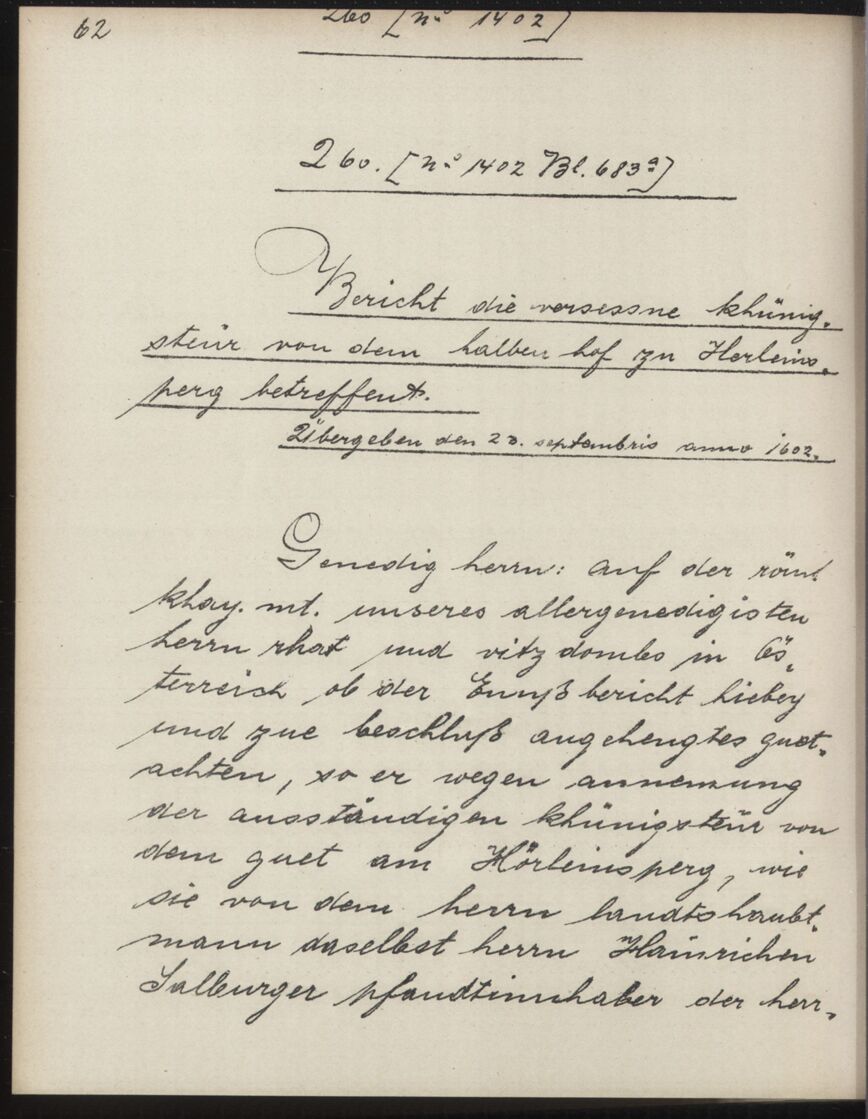 62
260 [No 1402]
260. [No 1402 Bl. 683a]
Bericht die versessne khünig-
steür von dem halben hof zu Herleins-
perg betreffent.
Übergeben den 23. septembris anno 1602.
Genedig herrn: auf der röm.
khay. mt. unseres allergenedigisten
herrn rhat und vitzdombs in Ös-
terreich ob der Ennß bericht hiebey
und zue beschluß angehengtes guet-
achten, so er wegen annemung
der ausständigen khünigsteür von
dem guet am Hörleinsperg, wie
sie von dem herrn landtshaubt-
mann daselbst herrn Hainrichen
Salburger pfandtinnhaber der herr-